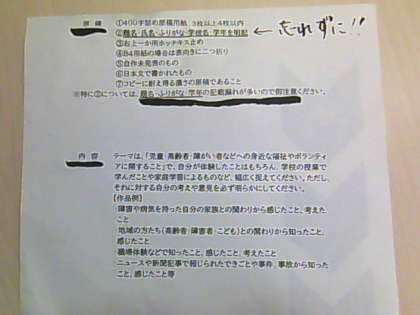 原稿 ①400字詰め原稿用紙 3枚以上4枚以内
②題名・氏名・ふりがな・学校名・学年を明記 ← 忘れずに!!
③右上一か所ホッチキス止め
④B4用紙の場合は表向きに二つ折り
⑤自作未発表のもの
⑥日本文で書かれたもの
⑦コピーに耐え得る濃さの原稿であること
※特に②については、題名・ふりがな・学年の記載漏れが多いので御注意ください。
内容 テーマは、「児童・高齢者・障がい者などへの身近な福祉やボランティ
アに関すること」で、自分が体験したことはもちろん、学校の授業で
学んだことや家庭学習によるものなど、幅広く捉えてください。ただし、
それに対する自分の考えや意見を必ず明らかにしてください。
【作品例】
・障害や病気を持った自分の家族との関わりから感じたこと、考えた
こと
・地域の方たち(高齢者・障害者・こども)との関わりから知ったこと、
感じたこと
・職場体験などで知ったこと、感じたこと、考えたこと
・ニュースや新聞記事で報じられたできごとや事件、事故から知った
こと、感じたこと等